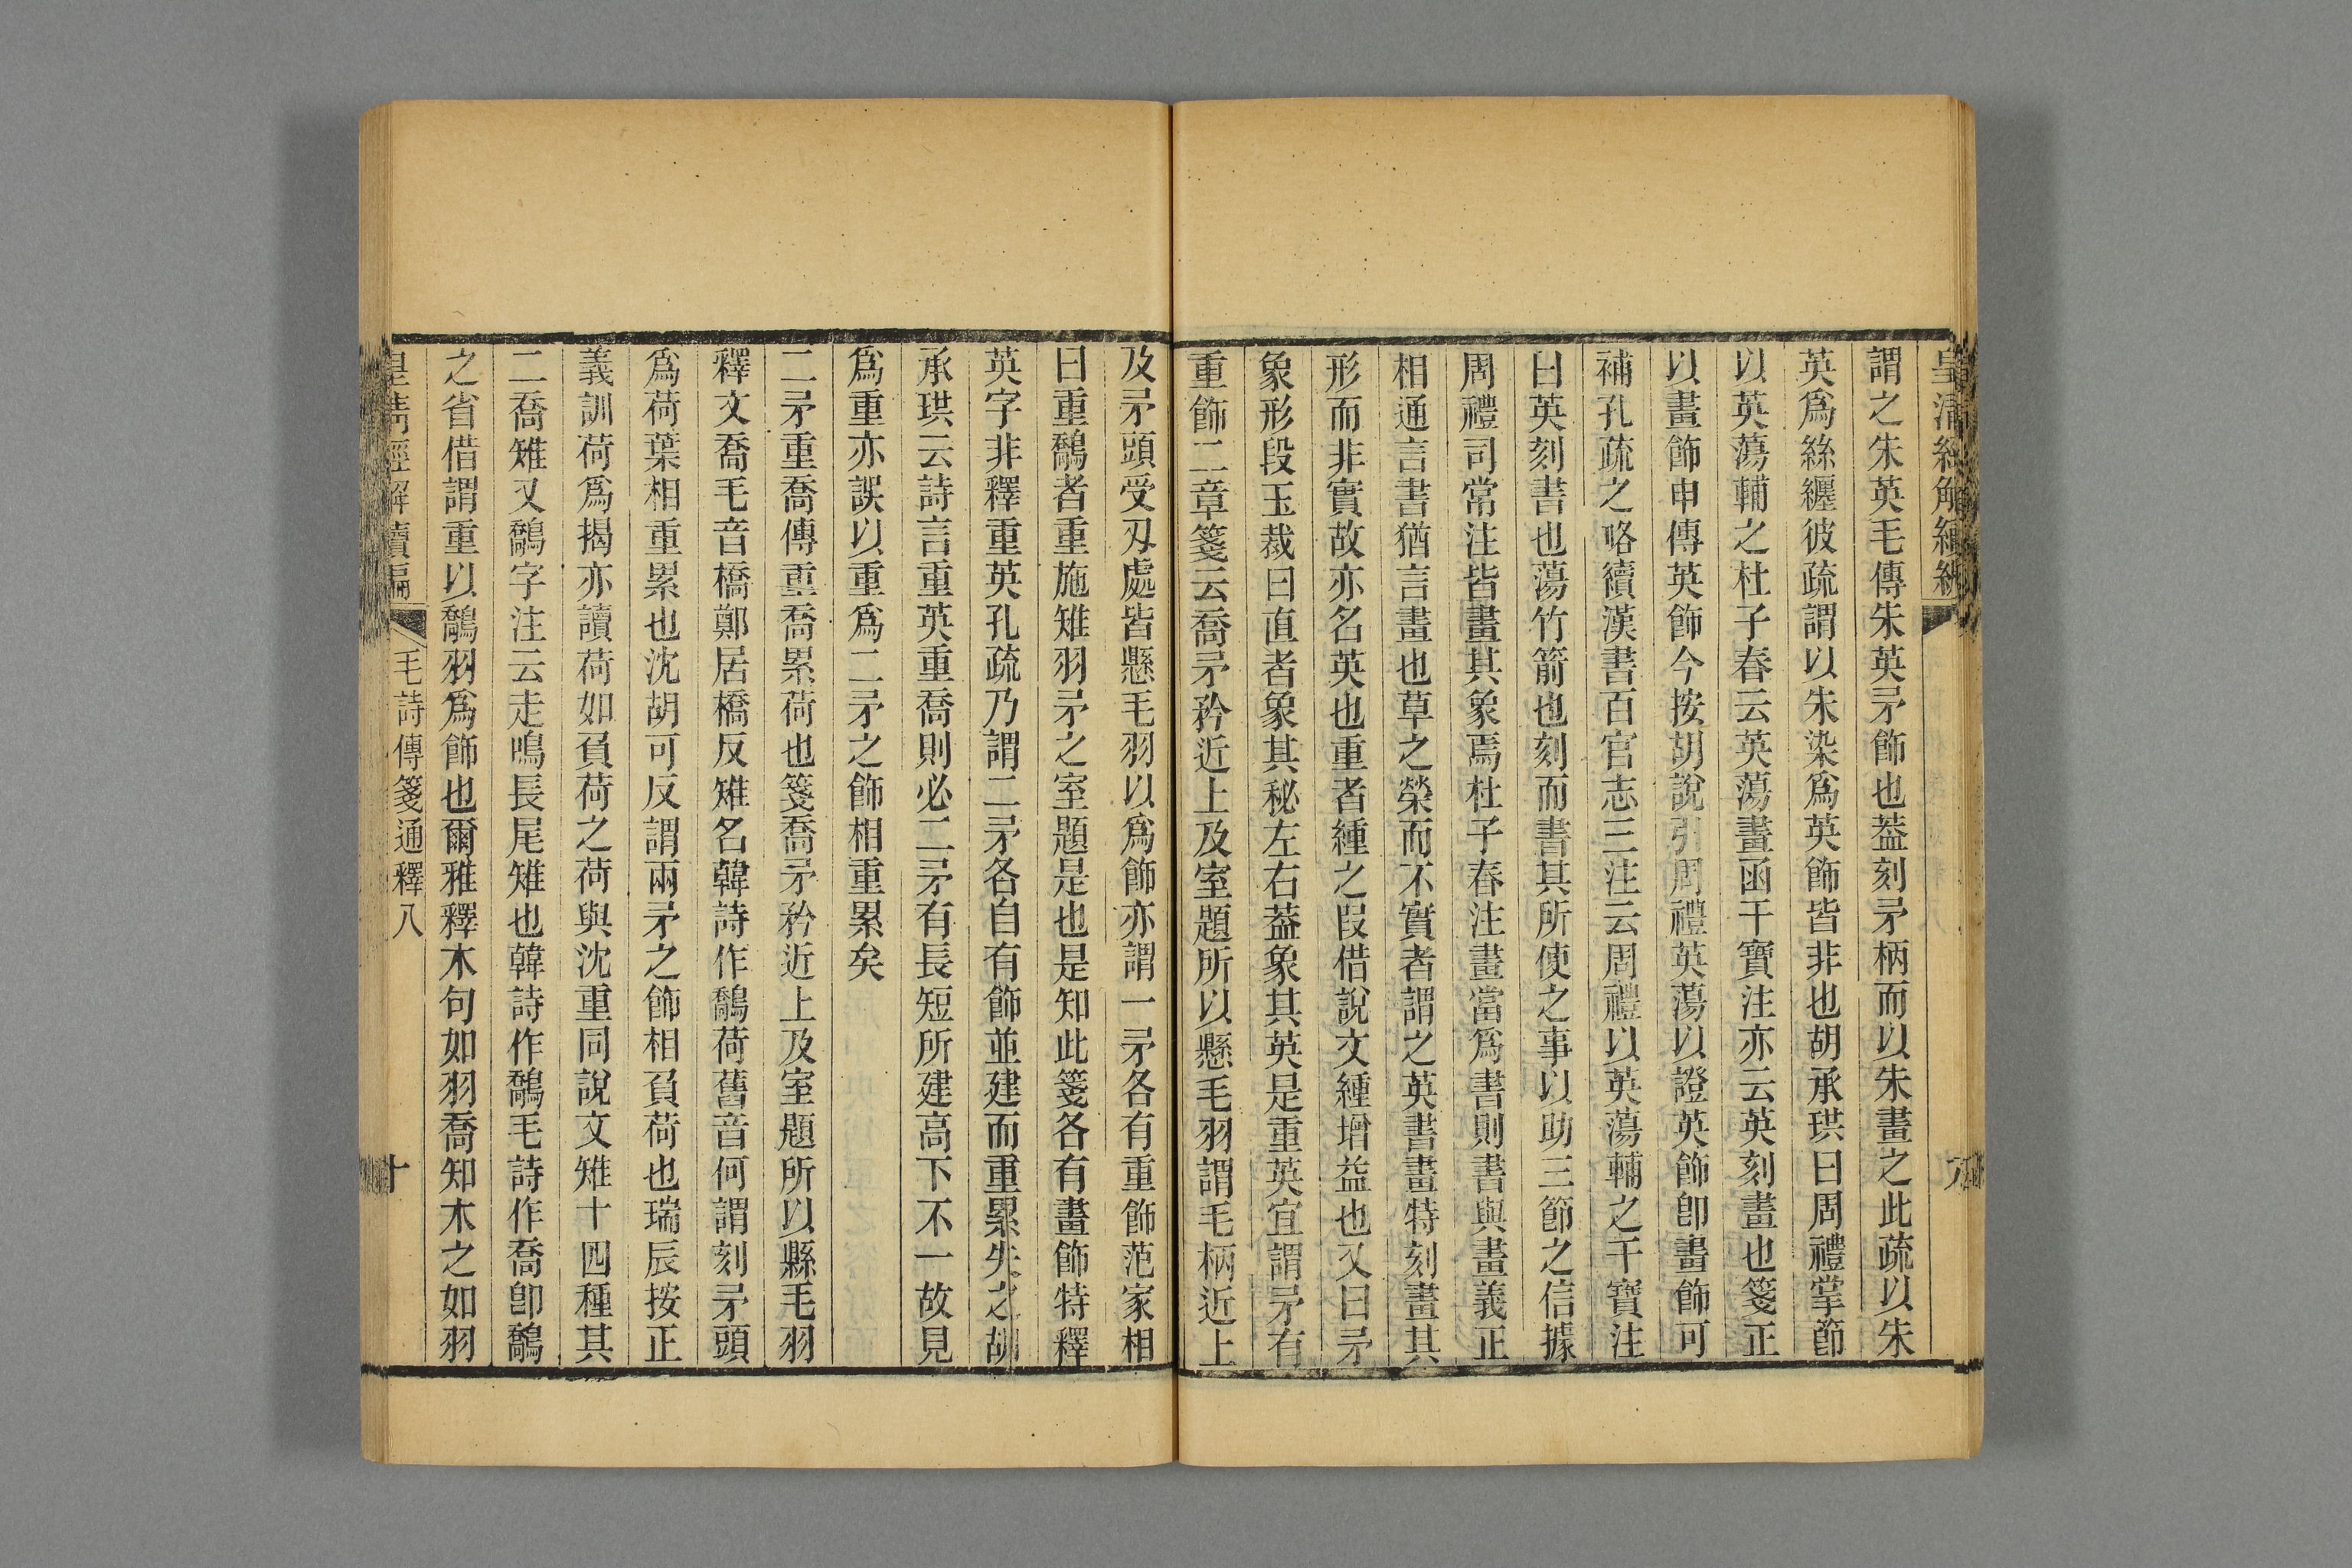 皇清經解續編
謂之朱英毛傳朱英矛飾也葢刻矛柄而以朱畫之此疏以朱
英爲絲纒彼疏謂以朱染爲英飾皆非也胡承珙曰周禮掌節
以英蕩輔之杜子春云英蕩畫函干寶注亦云英刻畫也箋正
以畫飾申傳英飾今按胡說引周禮英蕩以證英飾卽畫飾可
補孔疏之略續漢書百官志三注云周禮以英蕩輔之干寶注
曰英刻書也蕩竹箭也刻而書其所使之事以助三節之信據
周禮司常注皆畫其象焉杜子春注畫當爲書則書與畫義正
相通言書猶言畫也草之榮而不實者謂之英書畫特刻畫其
形而非實故亦名英也重者緟之叚借說文緟增益也又曰矛
象形段玉裁曰直者象其秘左右葢象其英是重英宜謂矛有
重飾二章箋云喬矛矜近上及室題所以懸毛羽謂毛柄近上
及矛頭受刄處皆懸毛羽以爲飾亦謂一矛各有重飾范家相
曰重鷮者重施雉羽矛之室題是也是知此箋各有畫飾特釋
英字非釋重英孔疏乃謂二矛各自有飾並建而重累失之胡
承珙云詩言重英重喬則必二矛有長短所建高下不一故見
爲重亦誤以重爲二矛之飾相重累矣
二矛重喬傳重喬累荷也箋喬矛矜近上及室題所以縣毛羽
釋文喬毛音橋鄭居橋反雉名韓詩作鷮荷舊音何謂刻矛頭
爲荷葉相重累也沈胡可反謂兩矛之飾相負荷也瑞辰按正
義訓荷爲揭亦讀荷如負荷之荷與沈重同說文雉十四種其
二喬雉又鷮字注云走鳴長尾雉也韓詩作鷮毛詩作喬卽鷮
之省借謂重以鷮羽爲飾也爾雅釋木句如羽喬知木之如羽
皇清經解續編
毛詩傳箋通釋八
十